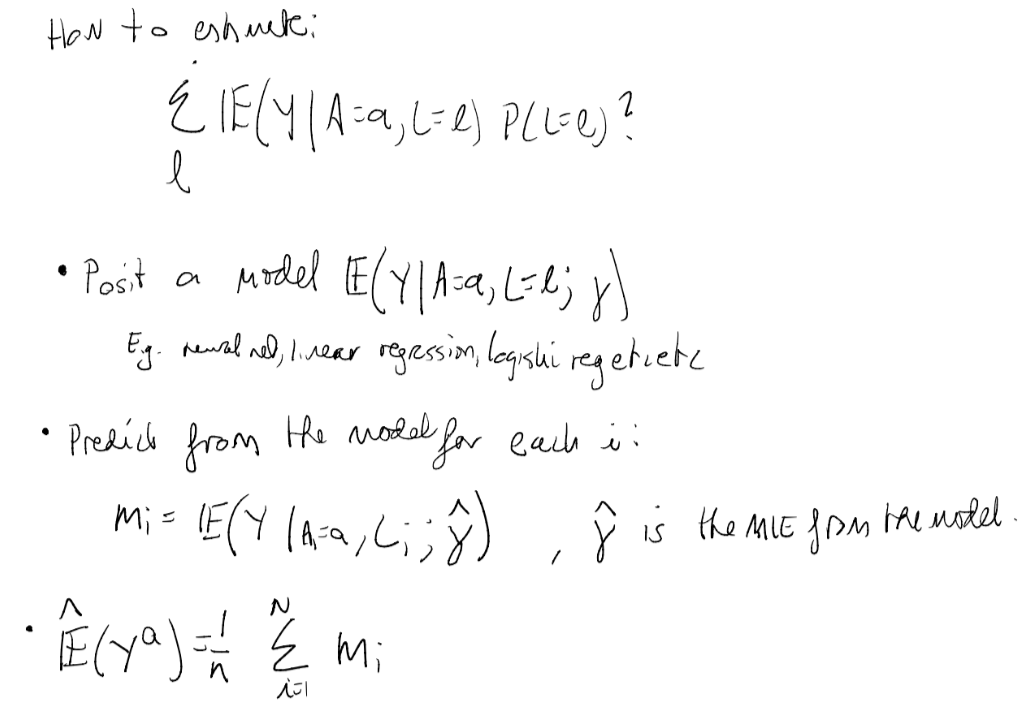 How to estimate:
Σ_l 𝔼(Y|A=a, L=l) P(L=l)?
• Posit a model 𝔼(Y|A=a, L=l; γ)
E.g. neural net, linear regression, logistic reg etc etc
• Predict from the model for each i:
m_i = 𝔼(Y|A=a, L_i; γ̂) , γ̂ is the MLE from the model.
• 𝔼̂(Y^a) = 1/n Σ_{i=1}^N m_i